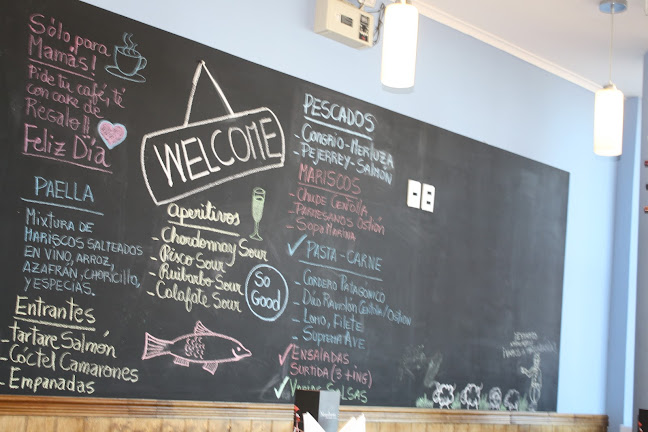 Sólo para
Mamás!
Pide tu café, té
con cake de
Regalo!!
Feliz Día
WELCOME
PAELLA
Mixtura de
Mariscos salteados
en vino, arroz,
azafrán, choricillo,
y especias.
Entrantes
-Tartare Salmón
-Cóctel Camarones
-Empanadas
Aperitivos
-Chardonnay Sour
-Pisco Sour
-Ruibarbo Sour
-Calafate Sour
So
Good
PESCADOS
-Congrio-Merluza
-Pejerrey-Salmón
MARISCOS
-Chupe Centolla
-Parmesanos Ostión
-Sopa Marina
PASTA-CARNE
-Cordero Patagónico
-Dúo Raviolón Centolla/Ostión
-Lomo, Filete
-Suprema Ave
Ensaladas
Surtida (3 tins)
Varias Salsas